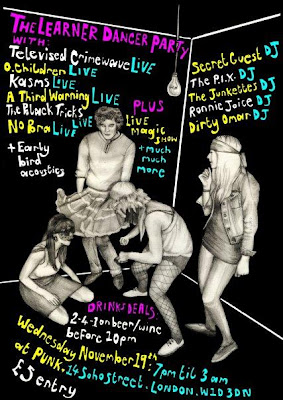 The Learner Dancer Party
with:
Televised Crimewave Live
O.Children Live
Kasms Live
A Third Warning Live
The Patrick Tricks Live
No Bra Live
+ Early
bird
acoustics
Plus
Live
Magic
Show
+ much
much
more
Secret Guest DJ
The P.I.X. DJ
The Junkettes DJ
Ronnie Joice DJ
Dirty Omar DJ
Drinks Deals:
2-4-1 on beer/wine
before 10pm
Wednesday November 19th: 7pm til 3am
at Punk, 14 Soho Street, London, W1D 3DN
£5 entry